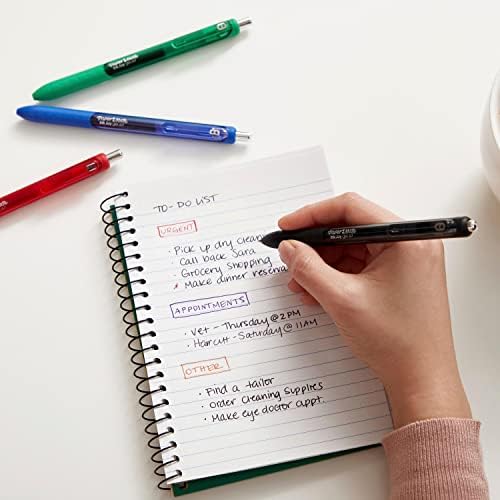 TO-DO LIST
URGENT
• Pick up dry cleani
• Call back Sara
• Grocery shopping
• Make dinner reserva
APPOINTMENTS
• Vet - Thursday @ 2PM
• Haircut - Saturday @ 11AM
OTHER
• Find a tailor
• Order cleaning supplies
• Make eye doctor appt.